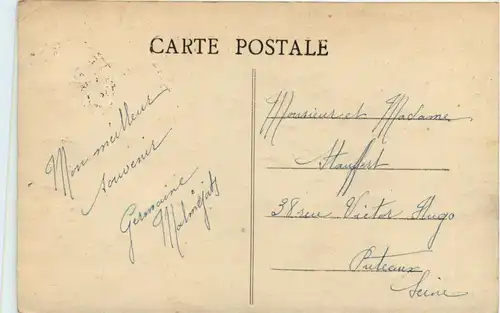 CARTE POSTALE
Mon meilleur
souvenir
Germaine
Monsieur et Madame
Stauffert
38 rue Victor Hugo
Puteaux
Seine